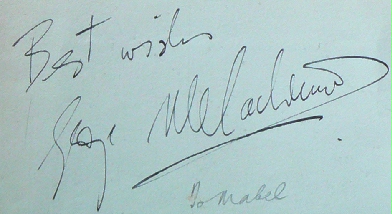 Best wishes
George Melachrino
To Mabel